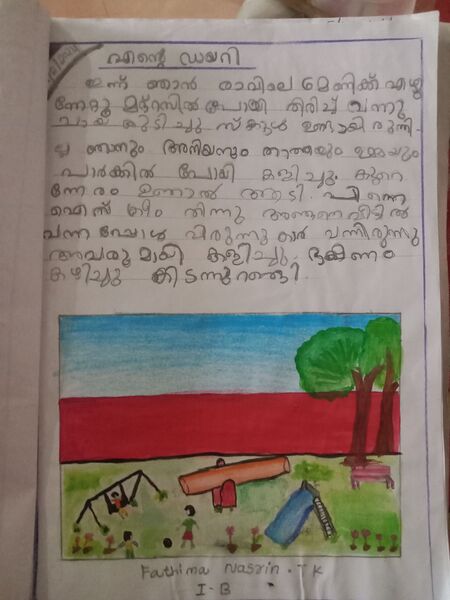 എന്റെ ഡയറി
ഇന്ന് ഞാൻ രാവിലെ 6 മണിക്ക് എഴു
ന്നേറ്റു മദ്റസിൽ പോയി തിരിച്ച് വന്നു
ചായ കുടിച്ചു സ്കൂൾ ഉണ്ടായിരുന്നി
ല്ല ഞാനും അനിയനും താത്തയും ഉമ്മയും
പാർക്കിൽ പോയി കളിച്ചു കുറെ
ന്നേരം ഉഞാൽ ആടി. പിന്നെ
ഐസ്ക്രീം തിന്നു വീട്ടിൽ
വന്നപ്പോൾ വിരുന്നുകാർ വന്നിരുന്നു
അവരുമായി കളിച്ചു. ഭക്ഷണം
കഴിച്ചു കിടന്നുറങ്ങി.
Fathima Nasrin. T K
I - B